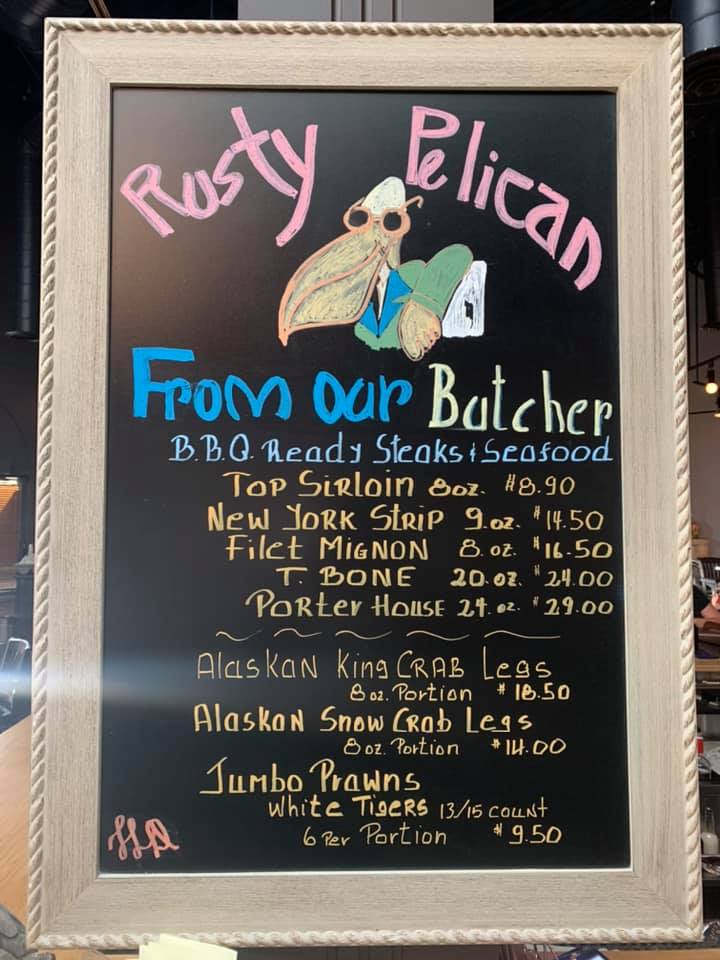 Rusty Pelican
From our Butcher
B.B.Q. Ready Steaks & Seafood
Top Sirloin 8oz. $8.90
New York Strip 9.oz. $14.50
Filet Mignon 8.oz. $16.50
T. Bone 20.oz. $24.00
Porter House 24.oz. $29.00
Alaskan King Crab Legs
8oz. Portion $18.50
Alaskan Snow Crab Legs
8oz. Portion $14.00
Jumbo Prawns
White Tigers 13/15 count
6 Per Portion $9.50